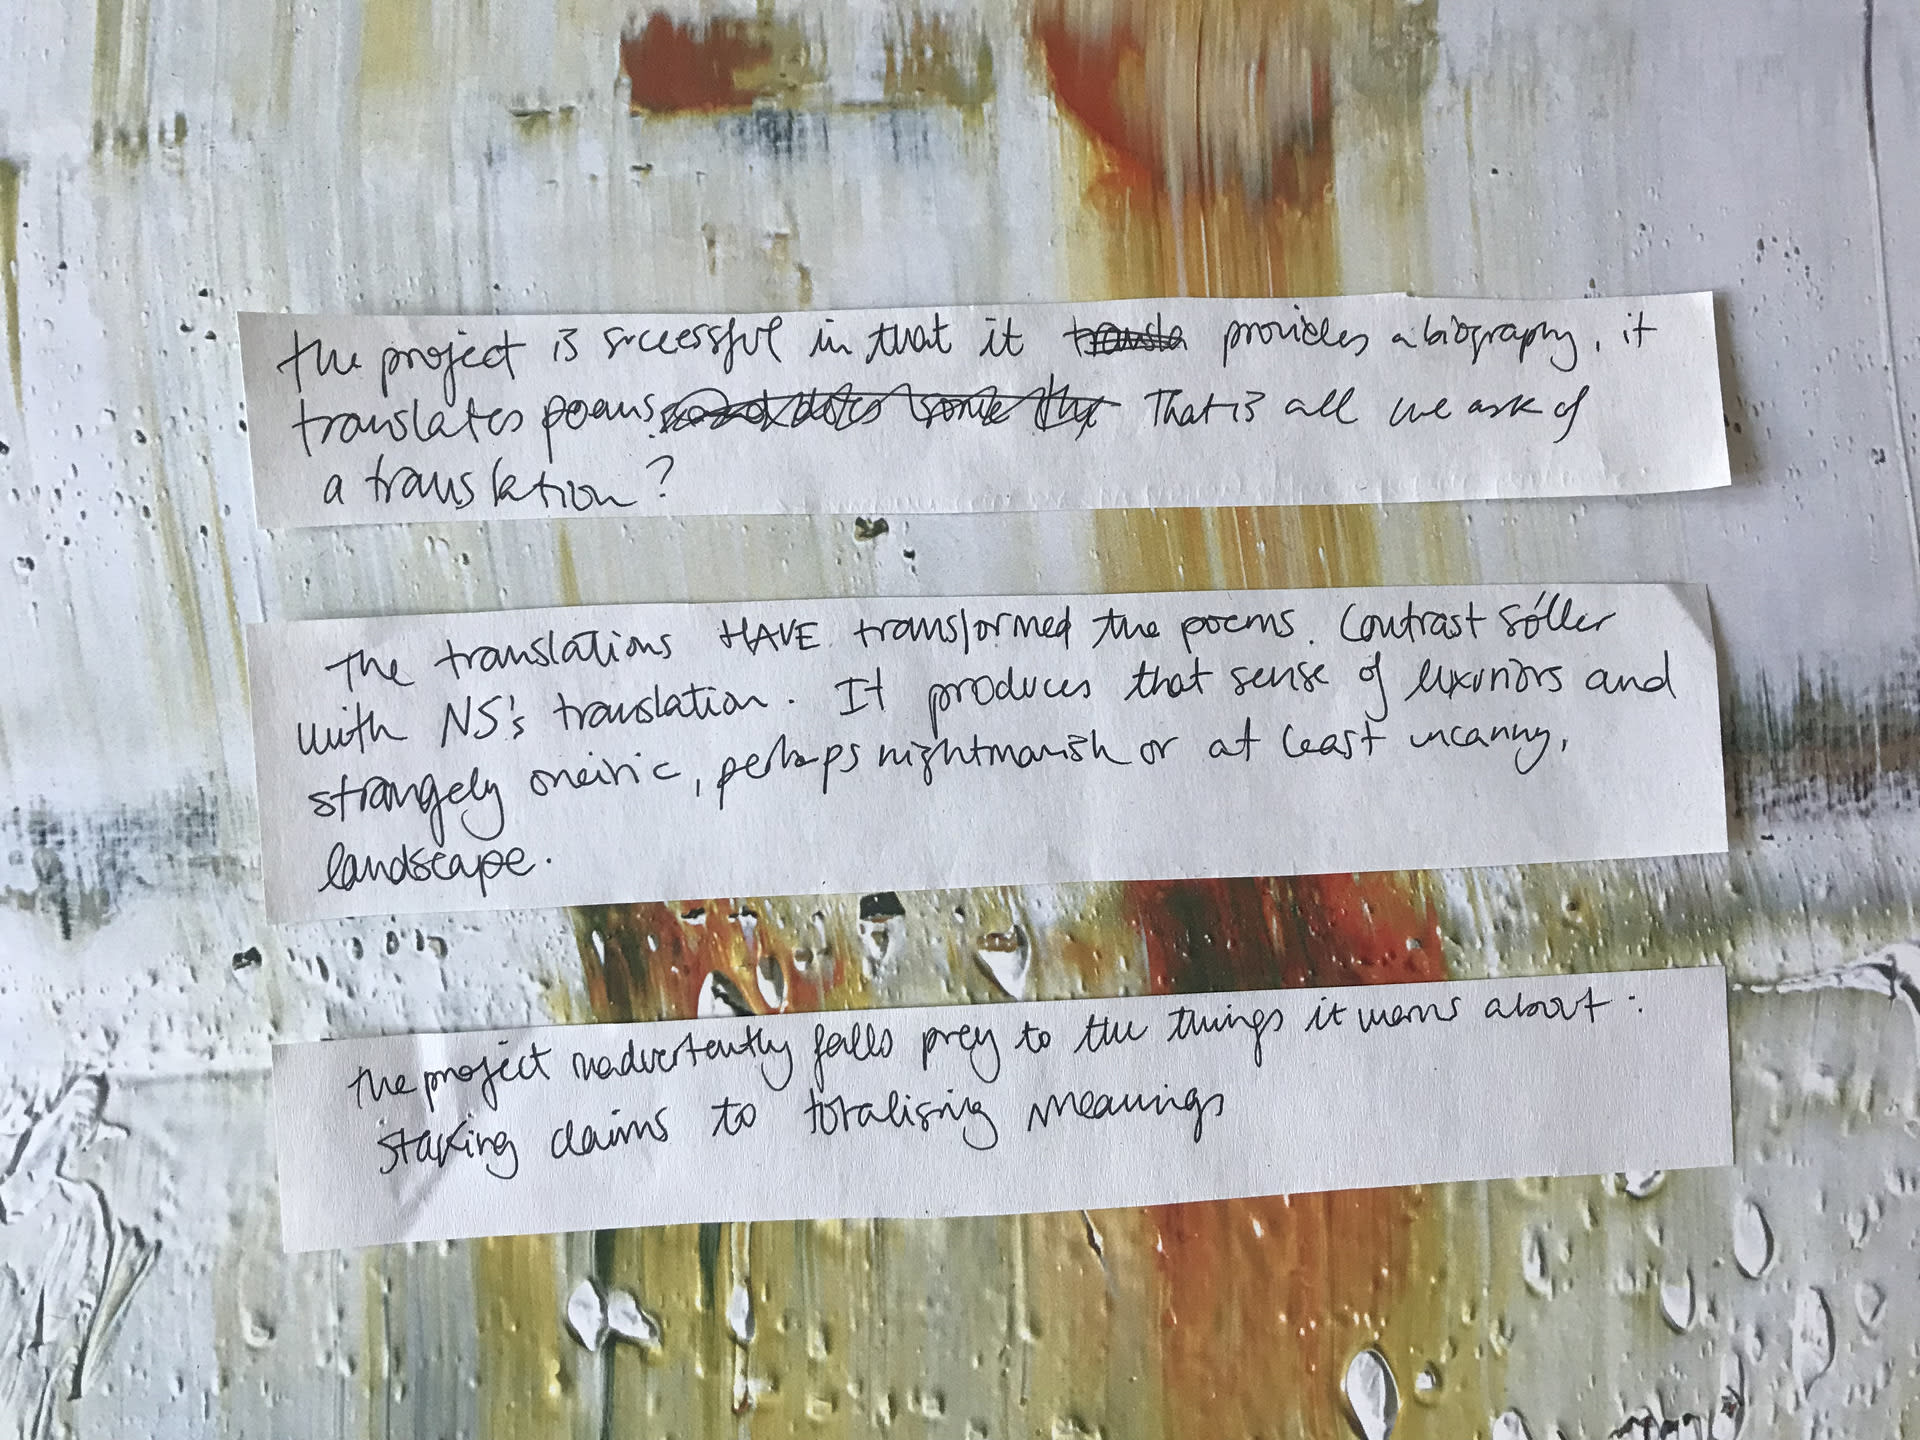 the project is successful in that it transla provides a biography, it
translates poems and does some the That is all we ask of
a translation?
The translations HAVE transformed the poems. Contrast Sóller
with NS's translation. It produces that sense of luxurious and
strangely oneiric, perhaps nightmarish or at least uncanny,
landscape.
the project inadvertently falls prey to the things it warns about:
staking claims to totalising meanings